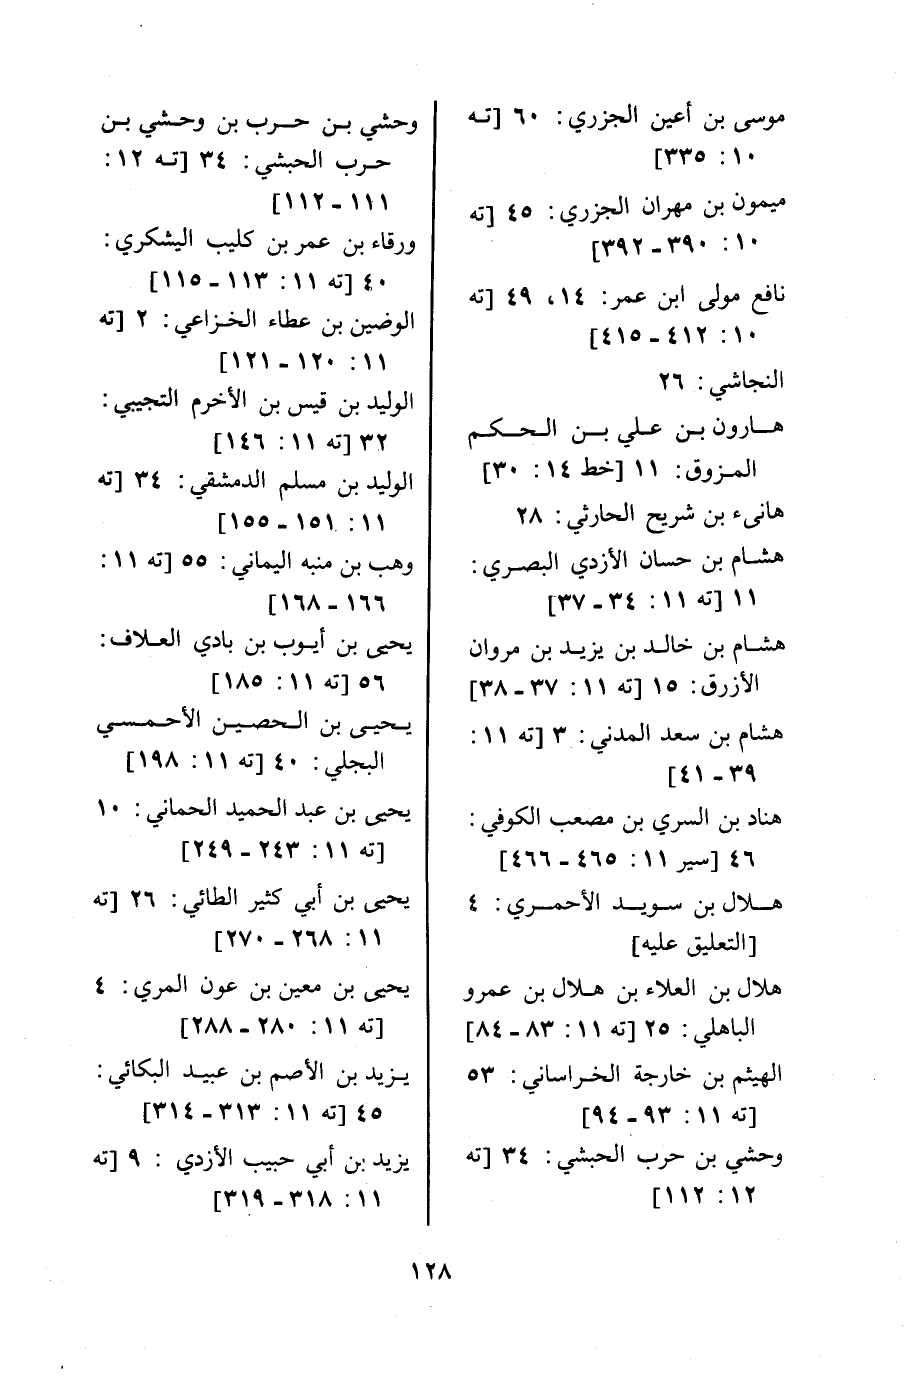 موسى بن أعين الجزري: ٦٠ [تـه
١٠: ٣٣٥]
ميمون بن مهران الجزري: ٤٥ [ته
١٠: ٣٩٠ - ٣٩٢]
نافع مولى ابن عمر: ١٤، ٤٩ [ته
١٠: ٤١٢ - ٤١٥]
النجاشي: ٢٦
هـارون بـن عـلي بـن الـحـكـم
المـزوق: ١١ [خط ١٤: ٣٠]
هانىء بن شريح الحارثي: ٢٨
هشـام بن حسان الأزدي البصـري:
١١ [ته ١١: ٣٤ - ٣٧]
هشـام بن خالـد بن يزيـد بن مروان
الأزرق: ١٥ [ته ١١: ٣٧ - ٣٨]
هشام بن سعد المدني: ٣ [ته ١١:
٣٩ - ٤١]
هناد بن السري بن مصعب الكوفي:
٤٦ [سير ١١: ٤٦٥ - ٤٦٦]
هـلال بن سـويـد الأحمـري: ٤
[التعليق عليه]
هلال بن العلاء بن هـلال بن عمرو
الباهلي: ٢٥ [ته ١١: ٨٣ - ٨٤]
الهيثم بن خارجة الخـراساني: ٥٣
[ته ١١: ٩٣ - ٩٤]
وحشي بن حرب الحبشي: ٣٤ [ته
١٢: ١١٢]
وحشي بـن حـرب بن وحـشي بـن
حـرب الحبشي: ٣٤ [تـه ١٢:
١١١ - ١١٢]
ورقاء بن عمر بن كليب اليشكري:
٤٠ [ته ١١: ١١٣ - ١١٥]
الوضين بن عطاء الخـزاعي: ٢ [ته
١١: ١٢٠ - ١٢١]
الوليد بن قيس بن الأخرم التجيبي:
٣٢ [ته ١١: ١٤٦]
الوليد بن مسلم الدمشقي: ٣٤ [ته
١١: ١٥١ - ١٥٥]
وهب بن منبه اليماني: ٥٥ [ته ١١:
١٦٦ - ١٦٨]
يحيى بن أيـوب بن بادي العـلاف:
٥٦ [ته ١١: ١٨٥]
يـحيـى بن الـحصيـن الأحـمـسـي
البجلي: ٤٠ [ته ١١: ١٩٨]
يحيى بن عبد الحميد الحماني: ١٠
[ته ١١: ٢٤٣ - ٢٤٩]
يحيى بن أبي كثير الطائي: ٢٦ [ته
١١: ٢٦٨ - ٢٧٠]
يحيى بن معين بن عون المري: ٤
[ته ١١: ٢٨٠ - ٢٨٨]
يـزيد بن الأصم بن عبيـد البكائي:
٤٥ [ته ١١: ٣١٣ - ٣١٤]
يزيد بن أبي حبيب الأزدي : ٩ [ته
١١: ٣١٨ - ٣١٩]
١٢٨